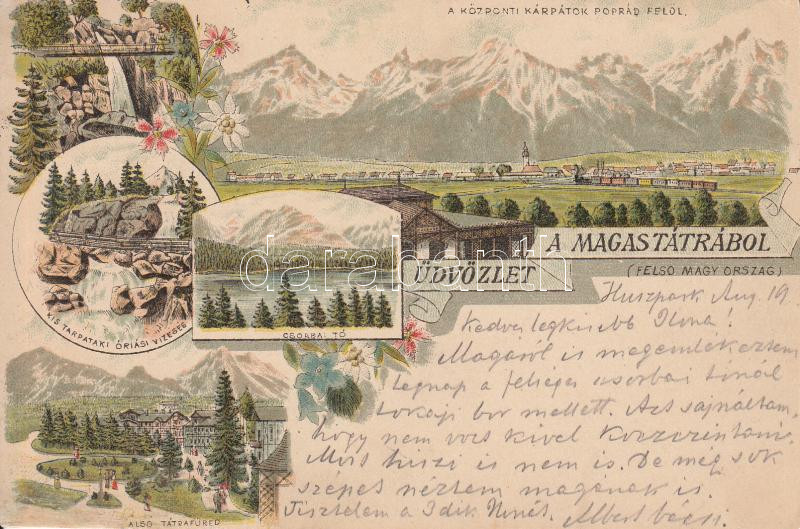 A KÖZPONTI KÁRPÁTOK POPRÁD FELŐL.
ÜDVÖZLET A MAGASTÁTRÁBOL
(FELSŐ MAGYORSZAG)
KIS TARPATAKI ÓRIÁSI VIZESÉS
CSORBAI TÓ
ALSÓ TÁTRAFÜRED
darabanth
Huszpark Aug. 19.
Kedves legkisebb Ilona!
Magáról is megemlékeztem
tegnap a felséges csorbai tónál
tokaji bor mellett. Azt sajnáltam,
hogy nem volt kivel
Most hiszi is nem is. De még sok
szépet néztem magának is.
Tisztelem a Nénét. Albert bácsi.